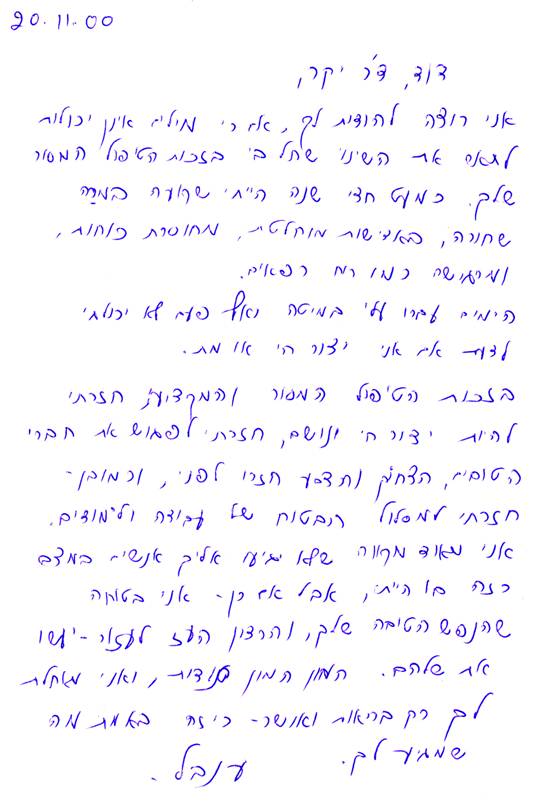 20.11.00
דוד, ד"ר יקר,
אני רוצה להודות לך, אם כי מילים אינן יכולות
לתאם את השינוי שחל בי בזכות הטיפול המסור
שלך. כמעט חצי שנה הייתי שקועה במרה
שחורה, באדישות מוחלטת, מחוסרת כוחות,
ומרגישה כמו רוח רפאים.
הימים עברו עלי במיטה ואף פעם לא יכולתי
לדעת אם אני יצור חי או מת.
בזכות הטיפול המסור והמקצועי חזרתי
להיות יצור חי ונושם, חזרתי לפגוש את חברי
הטובים, הצחוק והצבע חזרו לפני, וכמובן -
חזרתי למסלול הבטוח של עבודה ולימודים.
אני מאוד מקווה שלא יגיעו אליך אנשים במצב
כזה בו הייתי, אבל אם כן - אני בטוחה
שהנפש הטובה שלך, והרצון העז לעזור - יעשו
את שלהם. המון המון תודות, ואני מאחלת
לך רק בריאות ואושר - כי זה באמת מה
שמגיע לך. ענבל.